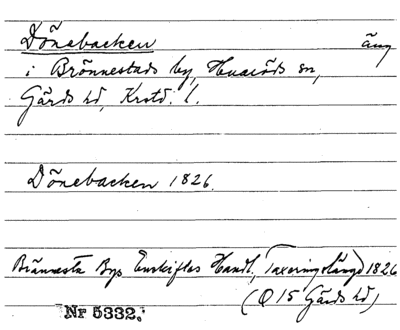 Dönebacken äng
i Brönnestads by, Huaröds sn,
Gärds hd, Krstd. l.
Dönebacken 1826.
Brännesta Bys Enskiftes Handl., Taxeringslängd 1826
(Q 15 Gärds hd)
Nr 5332.